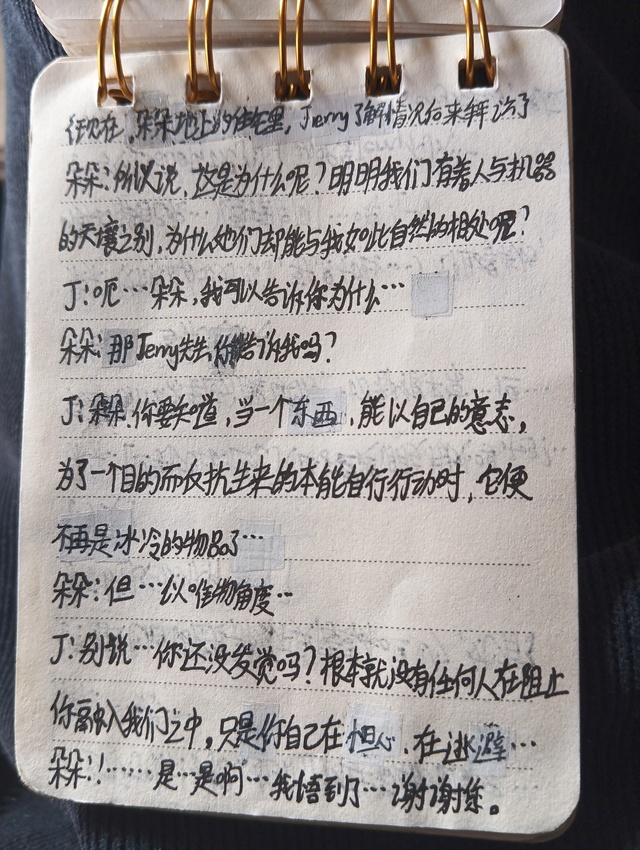 在朵朵地上的住宅里，Jerry了解情况后来拜访了
朵朵：所以说，这是为什么呢？明明我们有着人与机器
的天壤之别，为什么她们却能与我如此自然的相处呢？
J：呃…朵朵，我可以告诉你为什么…
朵朵：那Jerry先生，你能告诉我吗？
J：朵朵，你要知道，当一个东西，能以自己的意志，
为了一个目的而反抗生来的本能自行行动时，它便
不再是冰冷的物品了…
朵朵：但…以唯物角度…
J：别说…你还没发觉吗？根本就没有任何人在阻止
你融入我们之中，只是你自己在担心，在逃避…
朵朵！……是…是啊…我悟到了…谢谢你。